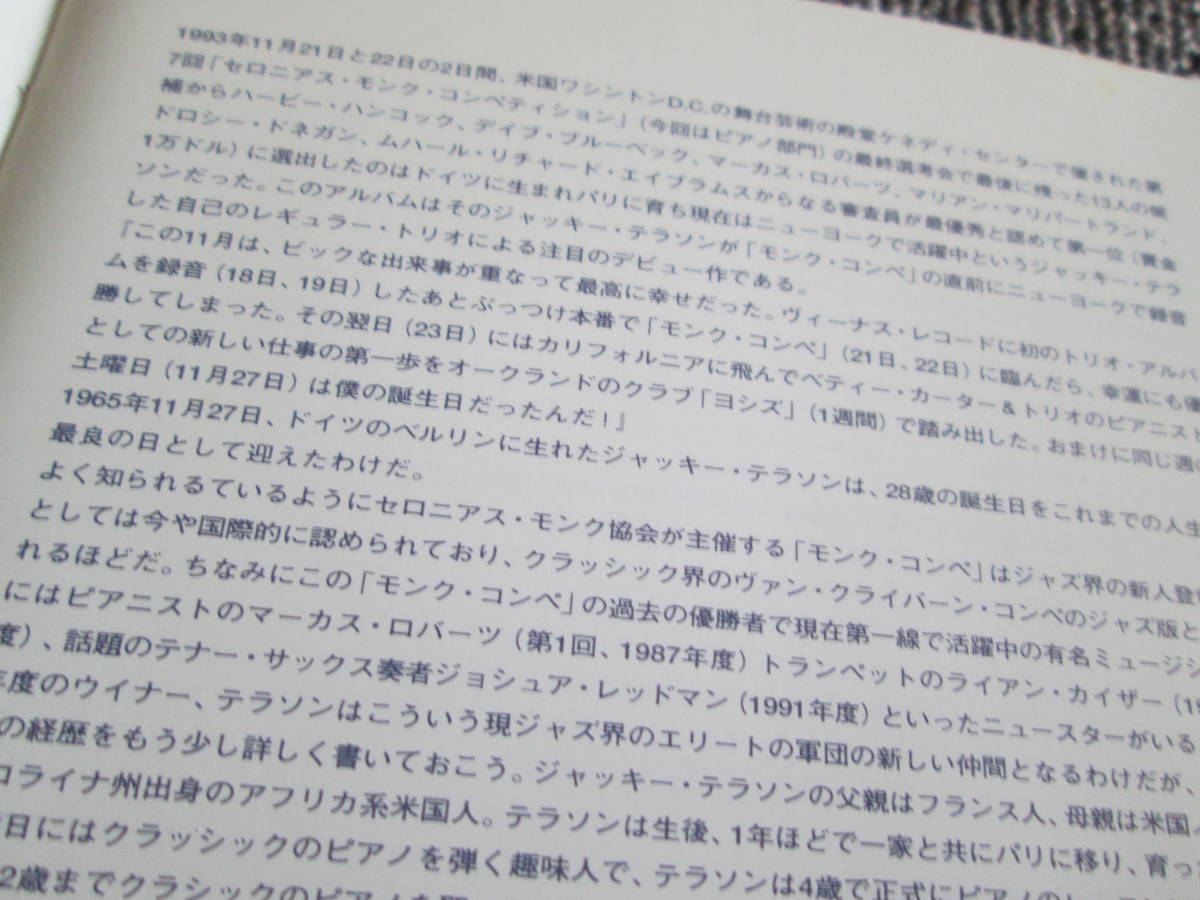 1993年11月21日と22日の2日間、米国ワシントンD.C.の舞台芸術の殿堂ケネディ・センターで催された第
7回「セロニアス・モンク・コンペティション」(今回はピアノ部門)の最終選考会で最後に残った13人の候
補からハービー・ハンコック、デイブ・ブルーベック、マーカス・ロバーツ、マリアン・マリパートランド、
ドロシー・ドネガン、ムハール・リチャード・エイブラムスからなる審査員が最優秀と認めて第一位(賞金
1万ドル)に選出したのはドイツに生まれパリに育ち現在はニューヨークで活躍中というジャッキー・テラ
ソンだった。このアルバムはそのジャッキー・テラソンが「モンク・コンペ」の直前にニューヨークで録音
した自己のレギュラー・トリオによる注目のデビュー作である。
『この11月は、ビックな出来事が重なって最高に幸せだった。ヴィーナス・レコードに初のトリオ・アルバ
ムを録音(18日、19日)したあとぶっつけ本番で「モンク・コンペ」(21日、22日)に臨んだら、幸運にも優
勝してしまった。その翌日(23日)にはカリフォルニアに飛んでベティー・カーター&トリオのピアニスト
としての新しい仕事の第一歩をオークランドのクラブ「ヨシズ」(1週間)で踏み出した。おまけに同じ週の
土曜日(11月27日)は僕の誕生日だったんだ!』
1965年11月27日、ドイツのベルリンに生れたジャッキー・テラソンは、28歳の誕生日をこれまでの人生
最良の日として迎えたわけだ。
よく知られるているようにセロニアス・モンク協会が主催する「モンク・コンペ」はジャズ界の新人登
としては今や国際的に認められており、クラッシック界のヴァン・クライバーン・コンペのジャズ版と
れるほどだ。ちなみにこの「モンク・コンペ」の過去の優勝者で現在第一線で活躍中の有名ミュージシ
にはピアニストのマーカス・ロバーツ(第1回、1987年度)トランペットのライアン・カイザー(19
度)、話題のテナー・サックス奏者ジョシュア・レッドマン(1991年度)といったニュースターがいる
年度のウイナー、テラソンはこういう現ジャズ界のエリートの軍団の新しい仲間となるわけだが、
の経歴をもう少し詳しく書いておこう。ジャッキー・テラソンの父親はフランス人、母親は米国
ロライナ州出身のアフリカ系米国人。テラソンは生後、1年ほどで一家と共にパリに移り、育っ
日にはクラッシックのピアノを弾く趣味人で、テラソンは4歳で正式にピアノの
2歳までクラシックのピアノを